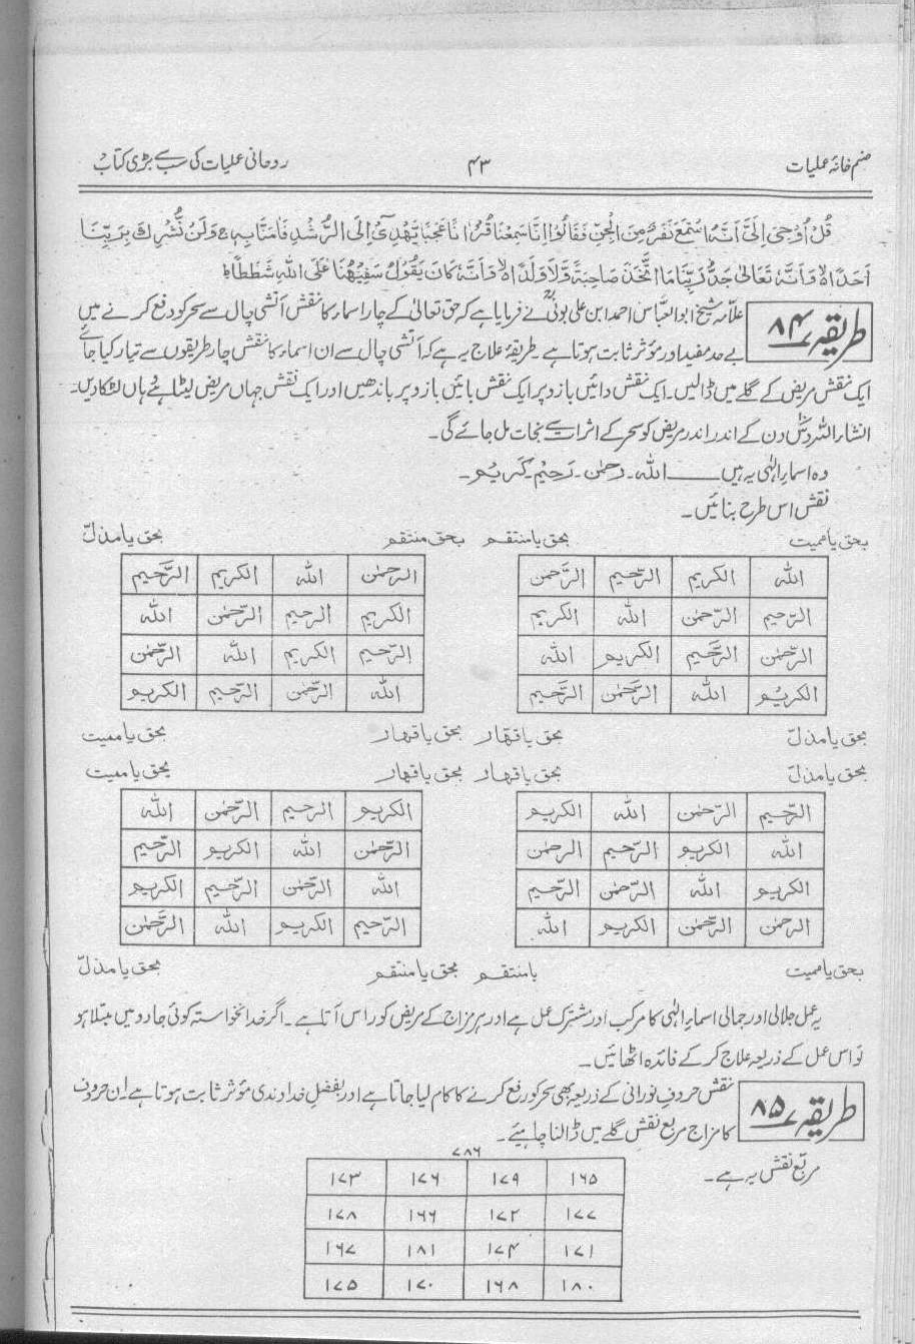 صنم خانۂ عملیات ۴۳ روحانی عملیات کی سب سے بڑی کتاب
قُلْ اُوْحِیَ اِلَیَّ اَنَّہُ اسْتَمَعَ نَفَرٌ مِّنَ الْجِنِّ فَقَالُوْا اِنَّا سَمِعْنَا قُرْاٰنًا عَجَبًا یَّهْدِیْ اِلَی الرُّشْدِ فَاٰمَنَّا بِہٖ وَلَنْ نُّشْرِكَ بِرَبِّنَا
اَحَدًا وَّاَنَّہٗ تَعَالٰی جَدُّ رَبِّنَا مَا اتَّخَذَ صَاحِبَۃً وَّلَا وَلَدًا وَّاَنَّہٗ كَانَ یَقُوْلُ سَفِیْهُنَا عَلَی اللّٰہِ شَطَطًا
طریقہ ۸۴ علامہ شیخ ابوالعباس احمد ابن علی بونیؒ نے فرمایا ہے کہ حق تعالیٰ کے چار اسماء کا نقش آتشی چال سے سحر کو دفع کرنے میں
بے حد مفید اور مؤثر ثابت ہوتا ہے۔ طریقۂ علاج یہ ہے کہ آتشی چال سے ان اسماء کا نقش چار طریقوں سے تیار کیا جائے
ایک نقش مریض کے گلے میں ڈالیں۔ ایک نقش دائیں بازو پر ایک نقش بائیں بازو پر باندھیں اور ایک نقش جہاں مریض لیٹتا ہے وہاں لٹکا دیں۔
انشاء اللہ دس دن کے اندر اندر مریض کو سحر کے اثرات سے نجات مل جائے گی۔
وہ اسماء الٰہی یہ ہیں ــــــ اللہ۔ رحمٰن۔ رحیم۔ کریم۔
نقش اس طرح بنائیں۔
بحق یا ممیت بحق یا منتقم بحق منتقم بحق یا مذلّ
اللہ الکریم الرّحیم الرّحمٰن
الرّحیم الرّحمٰن اللہ الکریم
الرّحمٰن الرّحیم الکریم اللہ
الکریم اللہ الرّحمٰن الرّحیم
الرحمٰن اللہ الکریم الرّحیم
الکریم الرحیم الرّحمٰن اللہ
الرّحیم الکریم اللہ الرّحمٰن
اللہ الرّحمٰن الرّحیم الکریم
بحق یا مذلّ بحق یا قہار بحق یا قہار بحق یا ممیت
بحق یا مذلّ بحق یا قہار بحق یا قہار بحق یا ممیت
الرّحیم الرّحمٰن اللہ الکریم
اللہ الکریم الرّحیم الرحمٰن
الکریم اللہ الرّحمٰن الرّحیم
الرحمٰن الرّحمٰن الکریم اللہ
الکریم الرحیم الرّحمٰن اللہ
الرّحمٰن اللہ الکریم الرّحیم
اللہ الرّحمٰن الرّحیم الکریم
الرّحیم الکریم اللہ الرّحمٰن
بحق یا ممیت یا منتقم بحق یا منتقم بحق یا مذلّ
یہ عمل جلالی اور جمالی اسماء الٰہی کا مرکب اور مشترک عمل ہے اور ہر مزاج کے مریض کو راس آتا ہے۔ اگر خدانخواستہ کوئی جادو میں مبتلا ہو
تو اس عمل کے ذریعہ علاج کر کے فائدہ اٹھائیں۔
طریقہ ۸۵ نقش حروف نورانی کے ذریعہ بھی سحر کو رفع کرنے کا کام لیا جاتا ہے اور بفضلِ خداوندی مؤثر ثابت ہوتا ہے۔ ان حروف
کا مزاج مربع نقش گلے میں ڈالنا چاہیئے۔
مربع نقش یہ ہے۔
۷۸۶
۱۶۵ ۱۷۹ ۱۷۶ ۱۷۳
۱۷۷ ۱۷۲ ۱۶۶ ۱۷۸
۱۷۱ ۱۷۴ ۱۸۱ ۱۶۷
۱۸۰ ۱۶۸ ۱۷۰ ۱۷۵